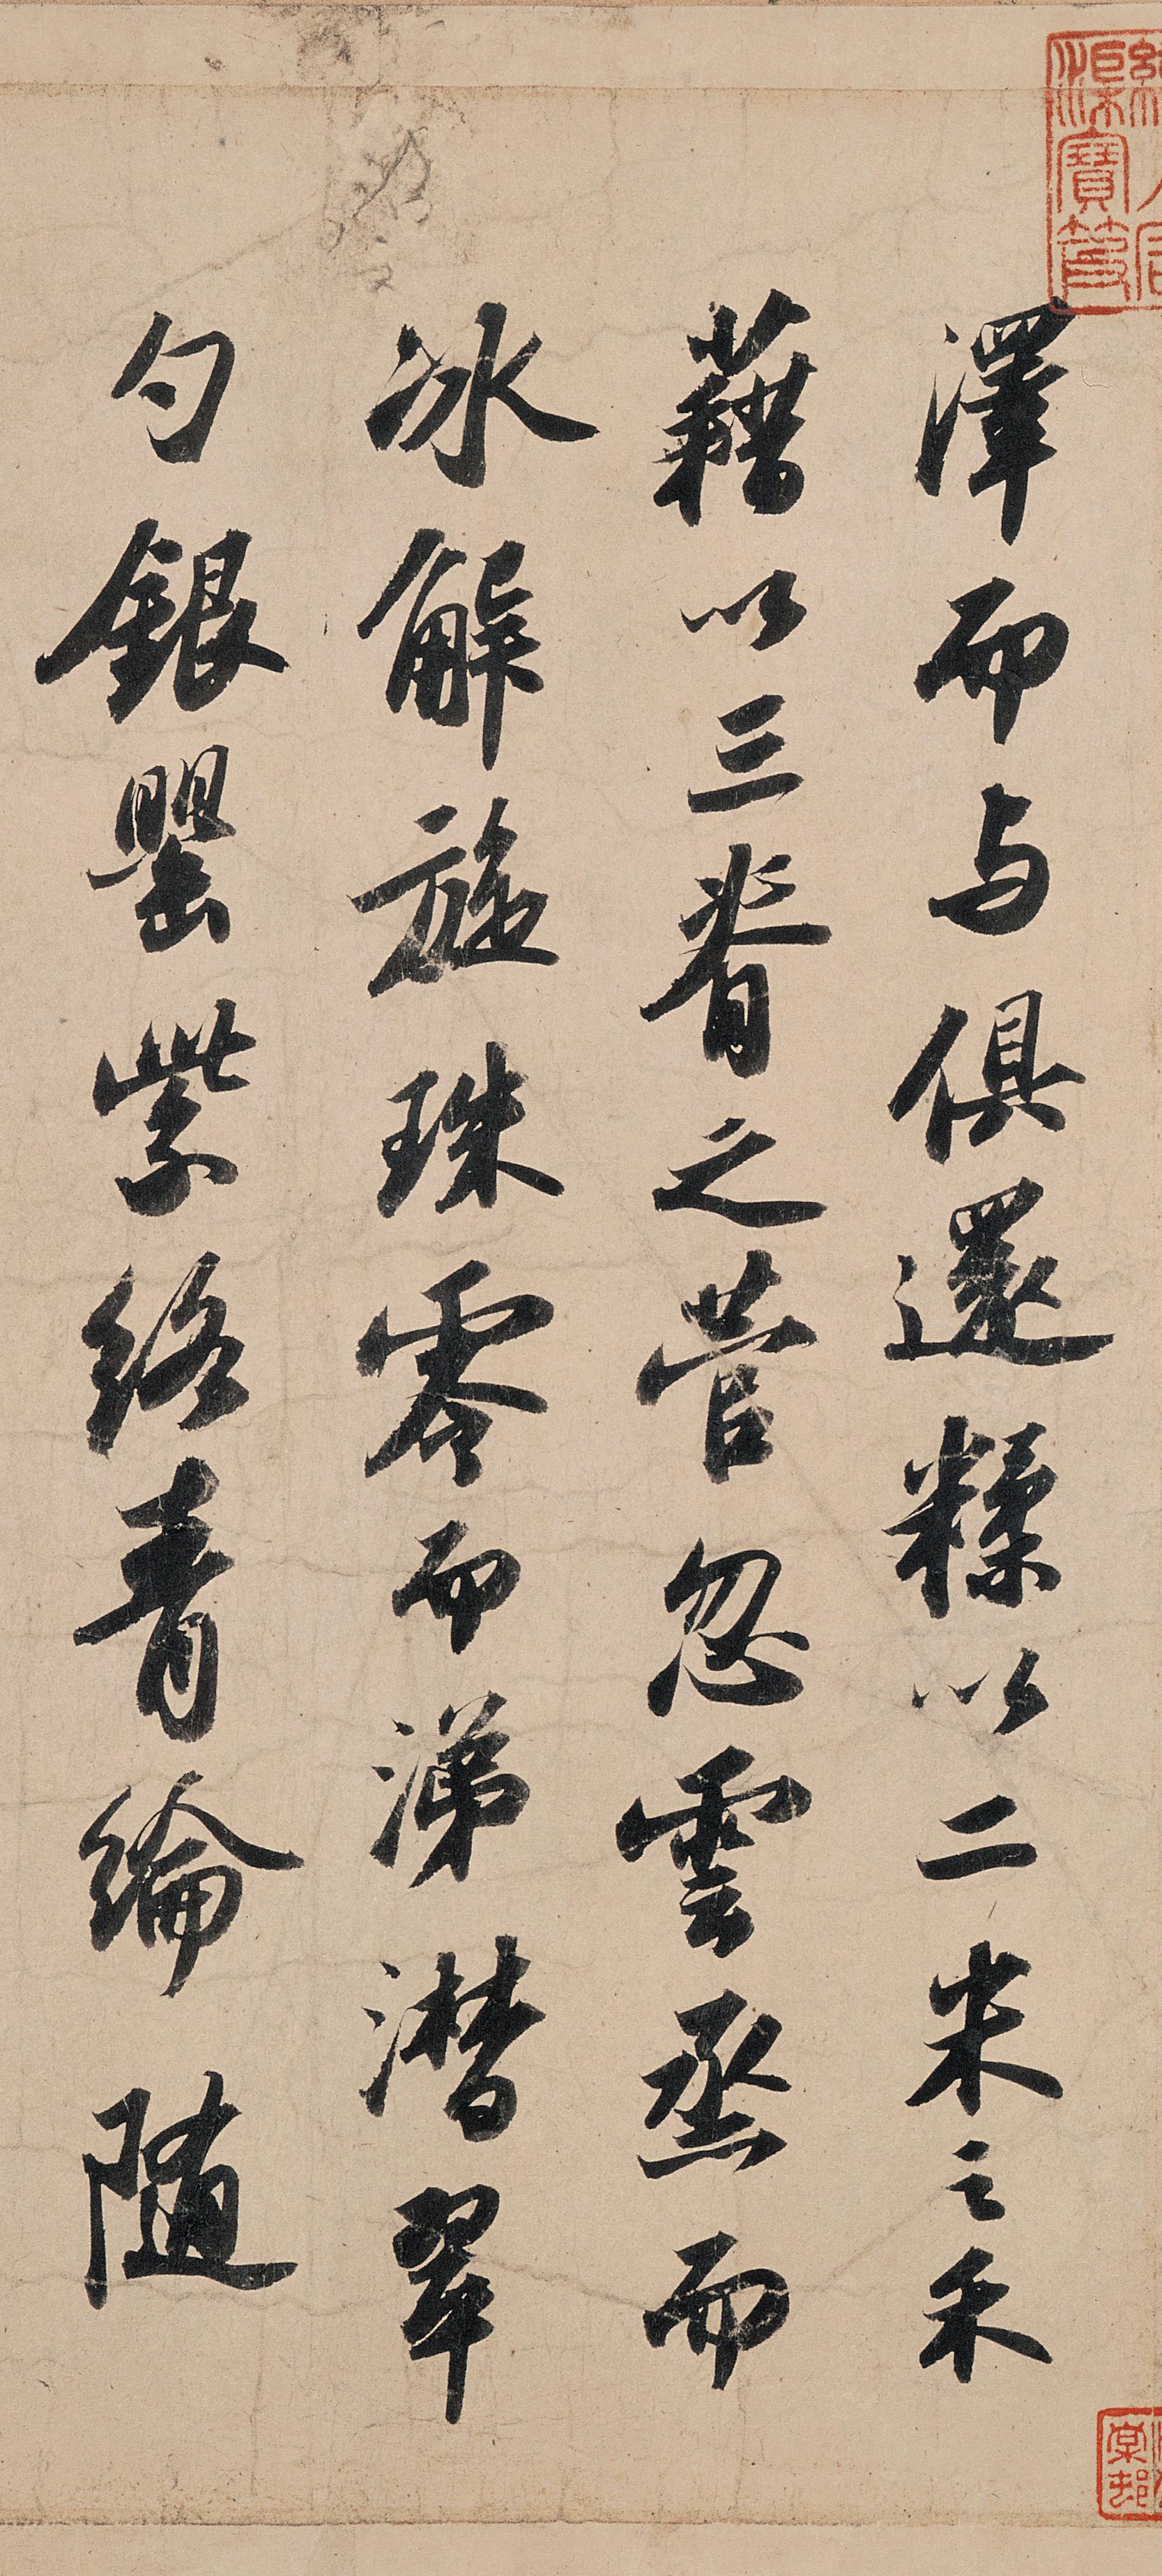 澤而与俱還糅以二米之禾
藉以三脊之菅忽雲烝而
冰解旋珠零而涕潸翠
勺銀罌紫絡青綸隨